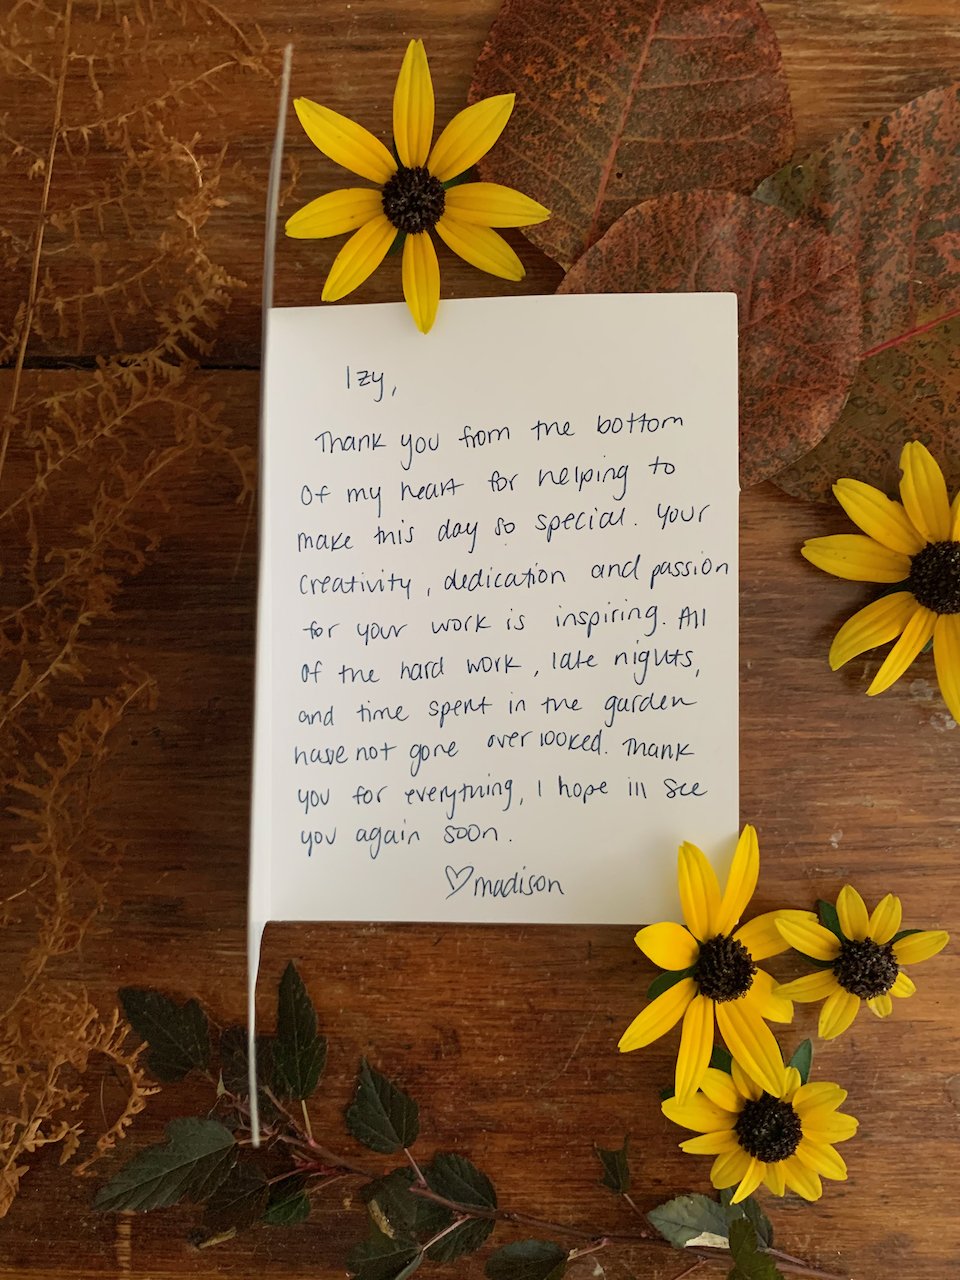 Izy,
Thank you from the bottom
Of my heart for helping to
make this day so special. Your
Creativity, dedication and passion
for your work is inspiring. All
Of the hard work, late nights,
and time spent in the garden
have not gone overlooked. Thank
you for everything, I hope ill see
you again soon.
♡madison